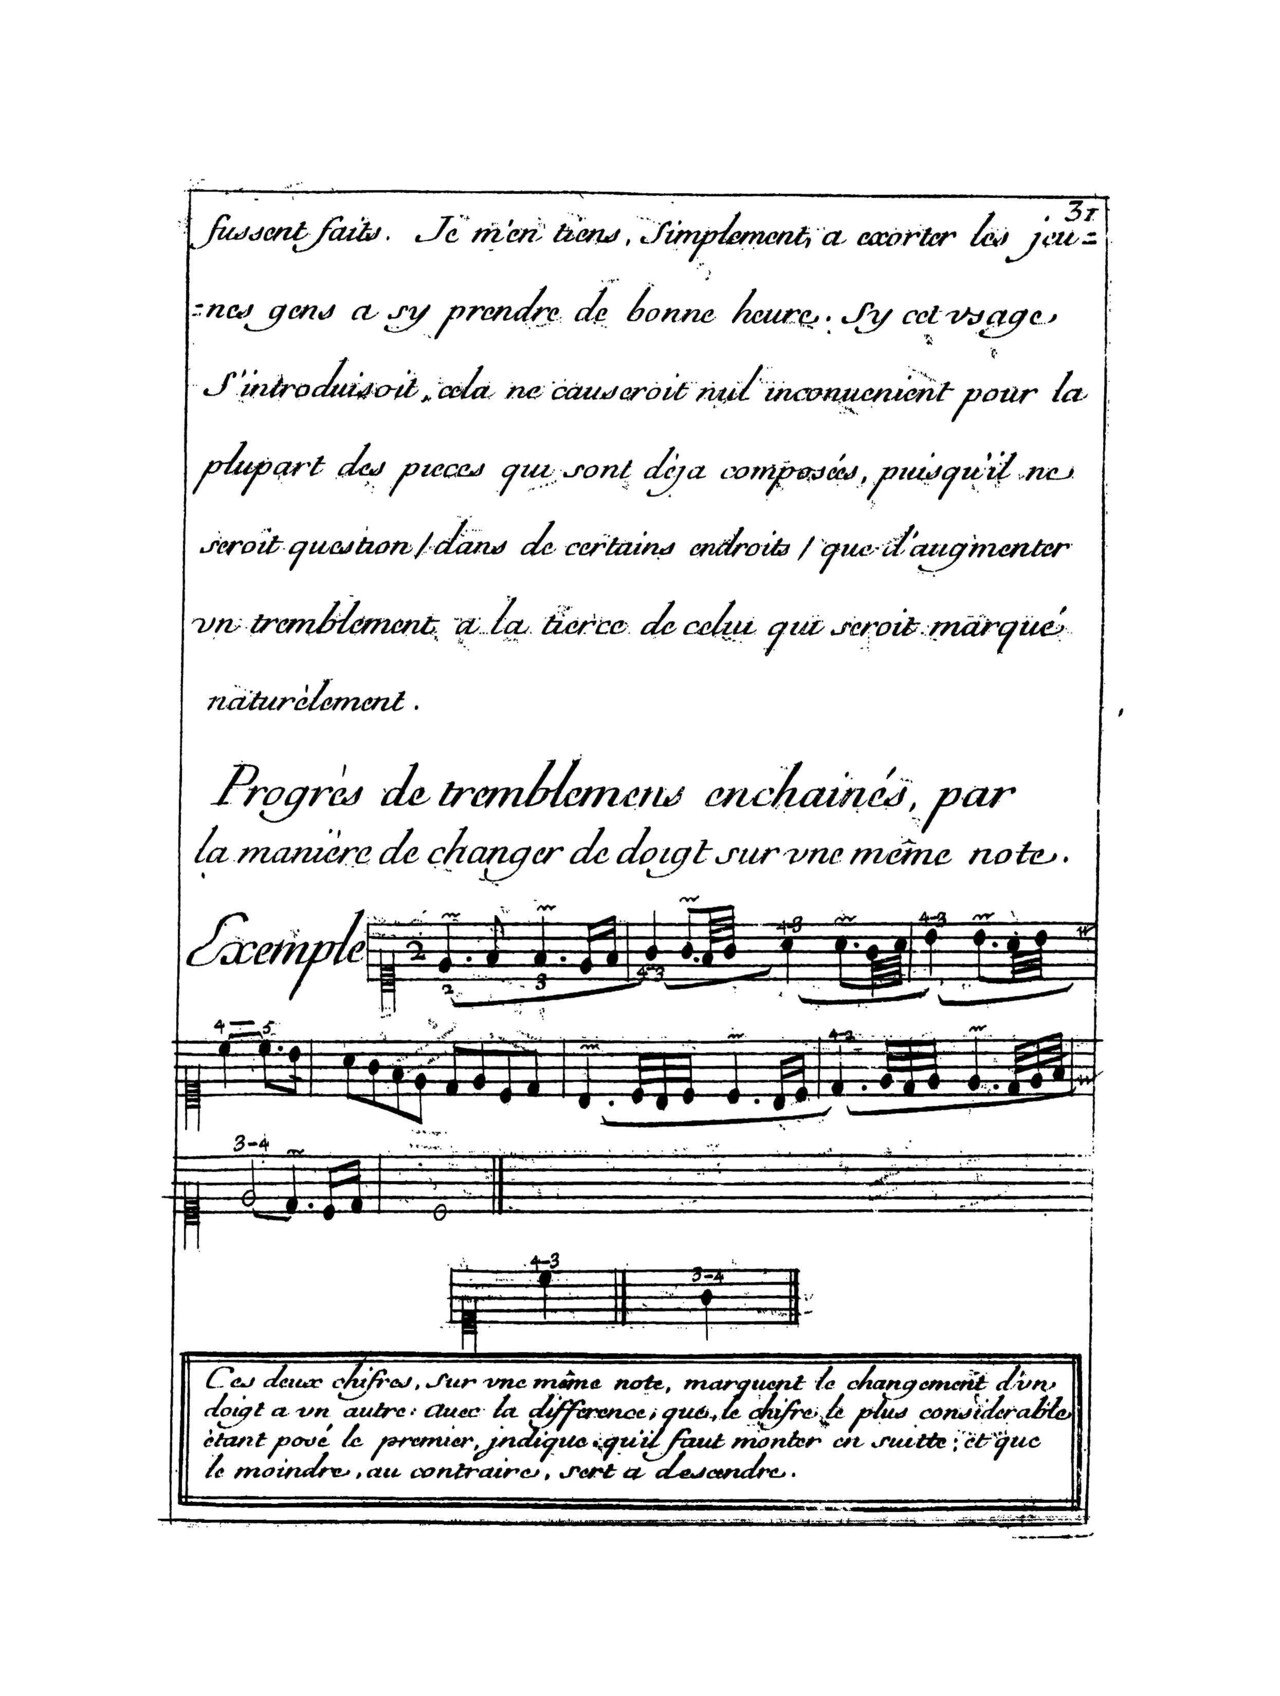 31
fussent faits. Je m'en tiens, Simplement, a exorter les jeu=
=nes gens a sy prendre de bonne heure. Sy cet vsage
S'introduisoit, cela ne causeroit nul inconuenient pour la
plupart des pieces qui sont dèja composées, puisqu'il ne
seroit question / dans de certains endroits / que d'augmenter
vn tremblement a la tierce de celui qui seroit marqué
naturèlement.
Progrès de tremblemens enchainés, par
la manière de changer de doigt sur vne même note.
Exemple
2
4-3 4-3
2 3 4-3
4 — 5 4-2
3-4
4-3 3-4
Ces deux chifres, sur vne même note, marquent le changement d'un
doigt a vn autre: Auec la difference, que, le chifre le plus considerable
ètant posé le premier, jndique qu'il faut monter en suitte; et que
le moindre, au contraire, sert a desendre.